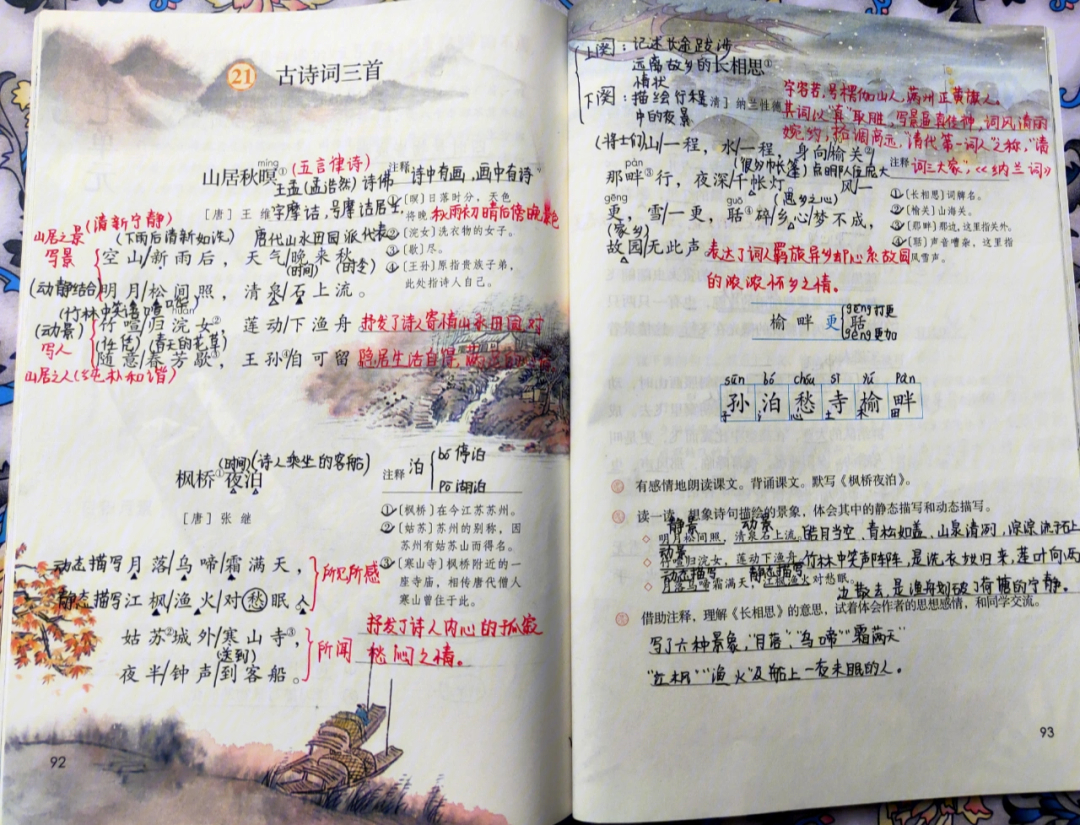 21 古诗词三首
míng
山居秋暝① (五言律诗)
王孟(孟浩然) 诗佛
[唐] 王维 字摩诘,号摩诘居士,
唐代山水田园派代表
(清新宁静)
山居之景
(下雨后清新如洗)
写景
空山/新雨后,天气/晚来秋
(时间) (时令)
(动静结合)
明月/松间照,清泉/石上流。
(竹林中笑语喧哗)
huàn
(动景)
竹喧/归浣女②,莲动/下渔舟
(任凭) (春天的花草)
写人
随意/春芳歇③,王孙④/自可留
山居之人
抒发了诗人寄情山水田园 对
隐居生活自得
注释 诗中有画,画中有诗
①〔暝〕日落时分,天色
将晚。
秋雨初晴后傍晚景色
②〔浣女〕洗衣物的女子。
③〔歇〕尽。
④〔王孙〕原指贵族子弟,
此处指诗人自己。
(时间)(诗人乘坐的客船)
枫桥①夜泊
[唐] 张继
动态描写
月落/乌啼/霜满天,
所见所感
静态描写
江枫/渔火/对愁眠
姑苏②城外/寒山寺③,
(送到)
所闻
夜半/钟声/到客船。
抒发了诗人内心的孤寂
愁闷之情。
注释 泊
bó 停泊
pō 湖泊
①〔枫桥〕在今江苏苏州。
②〔姑苏〕苏州的别称,因
苏州有姑苏山而得名。
③〔寒山寺〕枫桥附近的一
座寺庙,相传唐代僧人
寒山曾住于此。
92
上阕:记述长途跋涉
远离故乡的
情状
长相思①
下阕:描绘行程
中的夜景
[清] 纳兰性德
字容若,号楞伽山人,满州正黄旗人。
其词以"真"取胜,写景逼真传神,词风清丽
婉约,格调高远,"清代第一词人"之称,"清
词三大家",《纳兰词》
(将士们)
山/一程,水/一程,身向/榆关②
pàn
那畔③行,夜深/千帐灯。 风/一
gēng guō (思乡之心)
更,雪/一更,聒④碎/乡心/梦不成,
(家乡)
故园/无此声
表达了词人羁旅异乡却心系故园
的浓浓怀乡之情。
注释
①〔长相思〕词牌名。
②〔榆关〕山海关。
③〔那畔〕那边,这里指关外。
④〔聒〕声音嘈杂,这里指
风雪声。
榆 畔 更 聒
gēng 打更
gèng 更加
sūn bó chóu sì yú pàn
孙 泊 愁 寺 榆 畔
有感情地朗读课文。背诵课文。默写《枫桥夜泊》。
读一读,想象诗句描绘的景象,体会其中的静态描写和动态描写。
静景 动景
明月松间照,清泉石上流。
皓月当空、青松如盖、山泉清冽,淙淙流于石上
动景
竹喧归浣女,莲动下渔舟
竹林中笑声阵阵,是洗衣女归来,莲叶向两
边散去是渔舟划破了荷塘的宁静。
动态描写 静态描写
月落乌啼霜满天,江枫渔火对愁眠。
借助注释,理解《长相思》的意思,试着体会作者的思想感情,和同学交流。
写了六种景象,"月落""乌啼""霜满天"
"江枫""渔火"及船上一夜未眠的人。
93